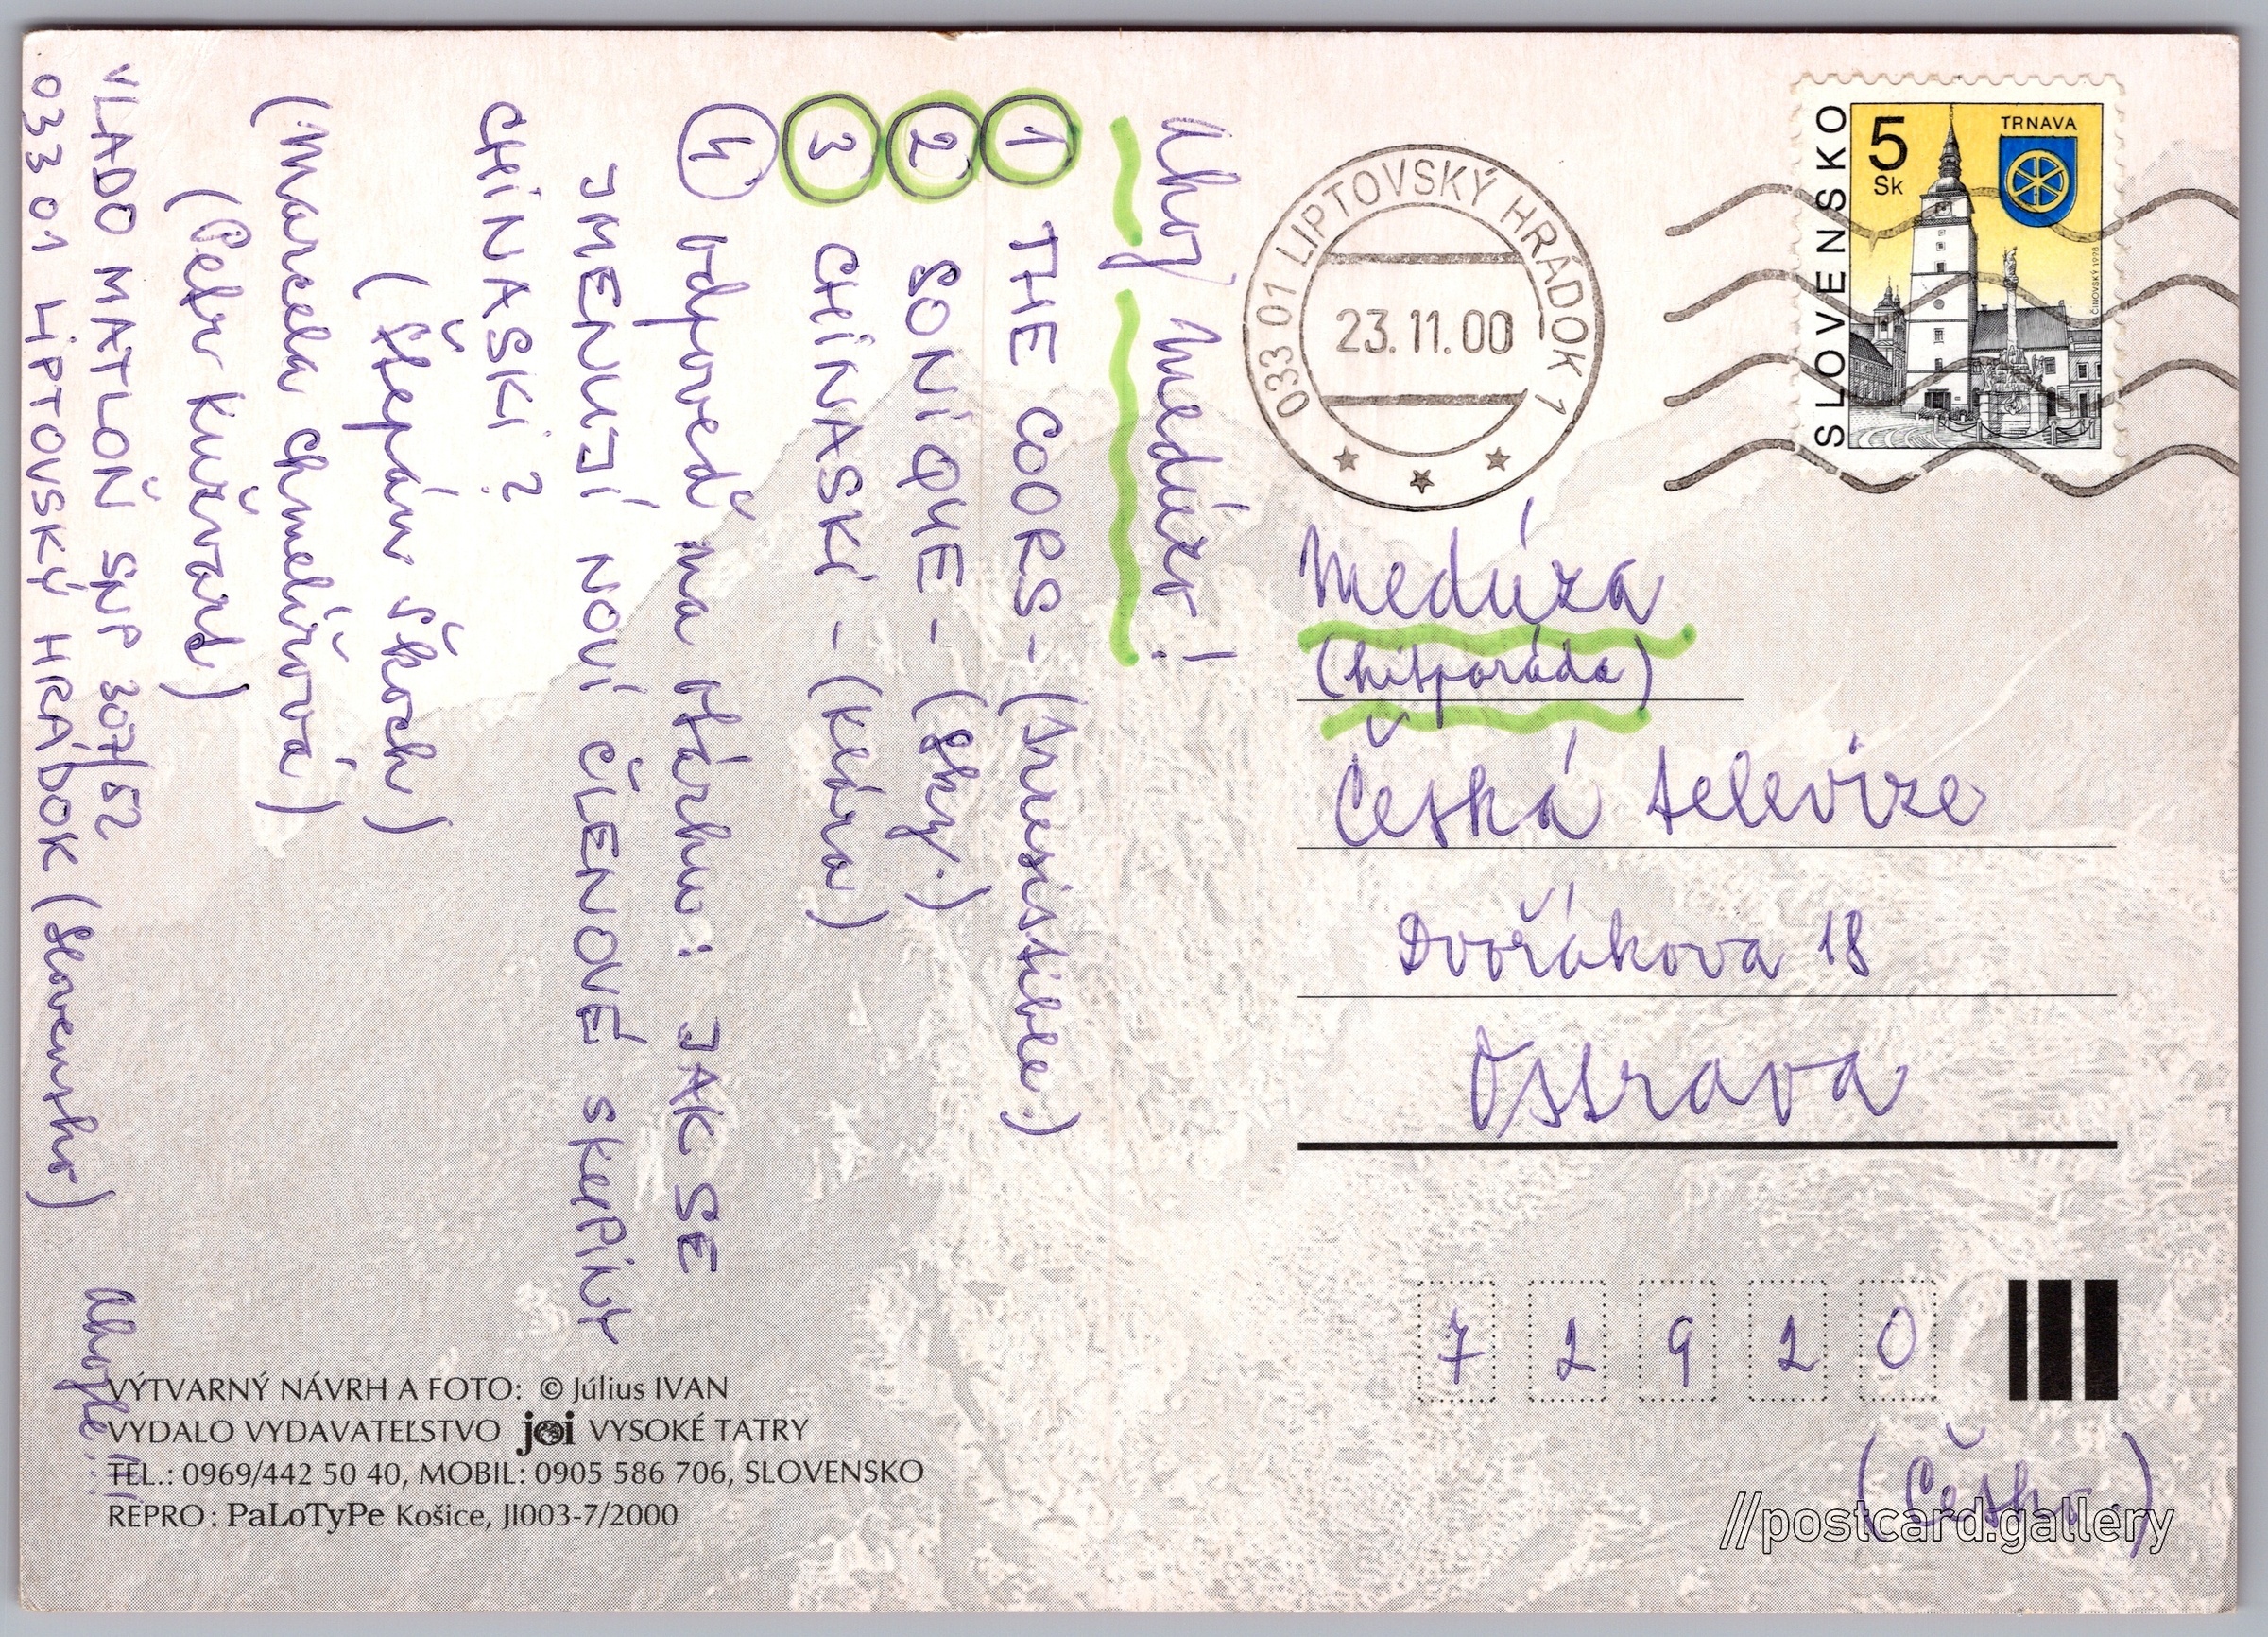 Ahoj Medúzo!
① THE COORS - (Irresistible)
② SONIQUE - (Sky.)
③ CHINASKI - (Klára)
④ odpoveď na otázku: JAK SE
JMENUJÍ NOVÍ ČLENOVÉ SKUPINY
CHINASKI?
(Štěpán Škoch)
(Marcela Chmelířová)
(Petr Kužvart)
VLADO MATLOŇ SNP 307/52
033 01 LIPTOVSKÝ HRÁDOK (Slovensko)
Ahojte!!!
033 01 LIPTOVSKÝ HRÁDOK 1
23.11.00
SLOVENSKO
5
Sk
TRNAVA
ČINOVSKÝ 1998
Medúza
(hitparáda)
Česká televize
Dvořákova 18
Ostrava
7 2 9 2 0
(Česko)
VÝTVARNÝ NÁVRH A FOTO: © Július IVAN
VYDALO VYDAVATEĽSTVO joi VYSOKÉ TATRY
TEL.: 0969/442 50 40, MOBIL: 0905 586 706, SLOVENSKO
REPRO: PaLoTyPe Košice, JI003-7/2000
//postcard.gallery